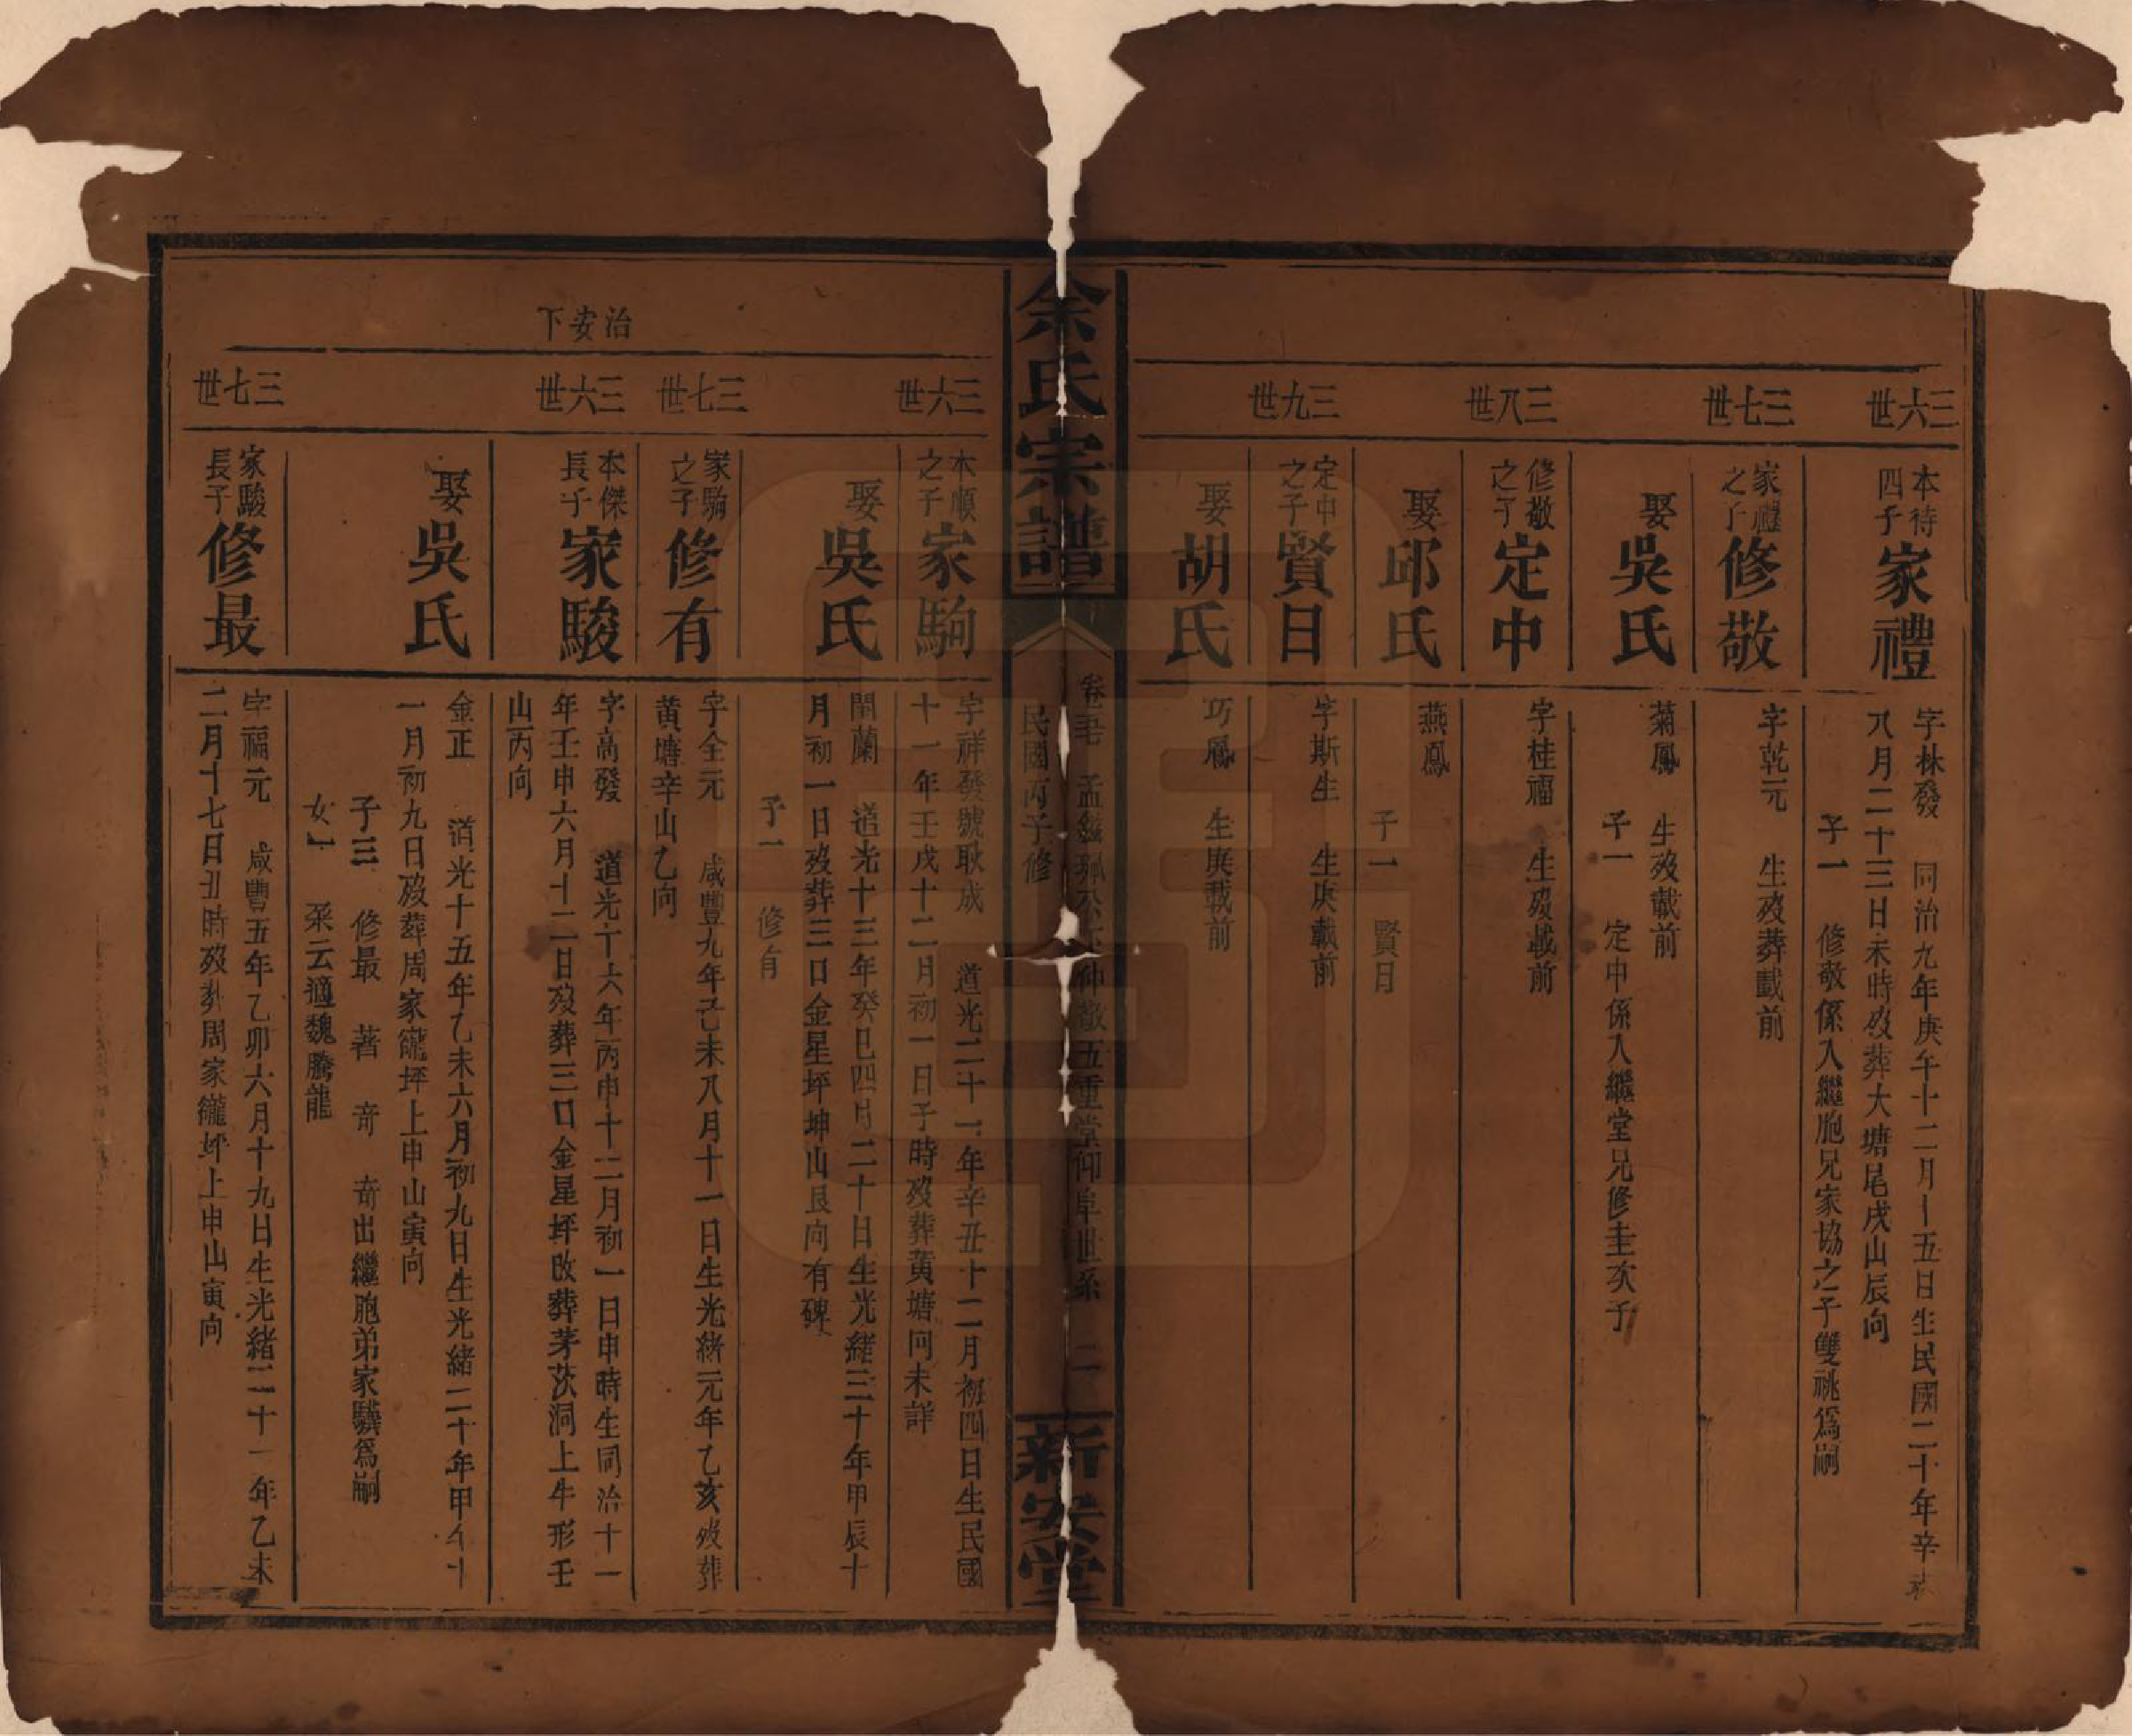 三六世
本待四子家禮
字林發 同治九年庚午十二月十五日生民國二十年辛未
八月二十三日未時歿葬大塘尾戌山辰向
子一 修敬係入繼胞兄家協之子雙祧為嗣
三七世
家禮之子修敬
字乾元 生歿葬載前
娶吳氏
菊鳳 生歿載前
子一 定中係入繼堂兄修圭次子
三八世
修敬之子定中
字桂福 生歿載前
娶邱氏
燕鳳
子一 賢日
三九世
定中之子賢日
字斯生 生庚載前
娶胡氏
巧鳳 生庚載前
余氏宗譜
卷 孟 仲敬五重堂仰阜世系 二
民國丙子修
新安堂
治安下
三六世
本順之子家駒
字祥發號耿成 道光二十一年辛丑十二月初四日生民國
十一年壬戌十二月初一日子時歿葬黃塘向未詳
娶吳氏
閏蘭 道光十三年癸巳四月二十日生光緒三十年甲辰十
月初一日歿葬三口金星坪坤山艮向有碑
子一 修有
三七世
家駒之子修有
字全元 咸豐九年己未八月十一日生光緒元年乙亥歿葬
黃塘辛山乙向
三六世
本傑長子家駿
字高發 道光十六年丙申十二月初一日申時生同治十一
年壬申六月十二日歿葬三口金星坪改葬茅茨洞上牛形壬
山丙向
娶吳氏
金正 道光十五年乙未六月初九日生光緒二十年甲午十
一月初九日歿葬周家巃坪上申山寅向
子三 修最 著 奇 奇出繼胞弟家驥為嗣
女一 菜云適魏騰龍
三七世
家駿長子修最
字福元 咸豐五年乙卯六月十九日生光緒二十一年乙未
二月十七日丑時歿葬周家巃坪上申山寅向